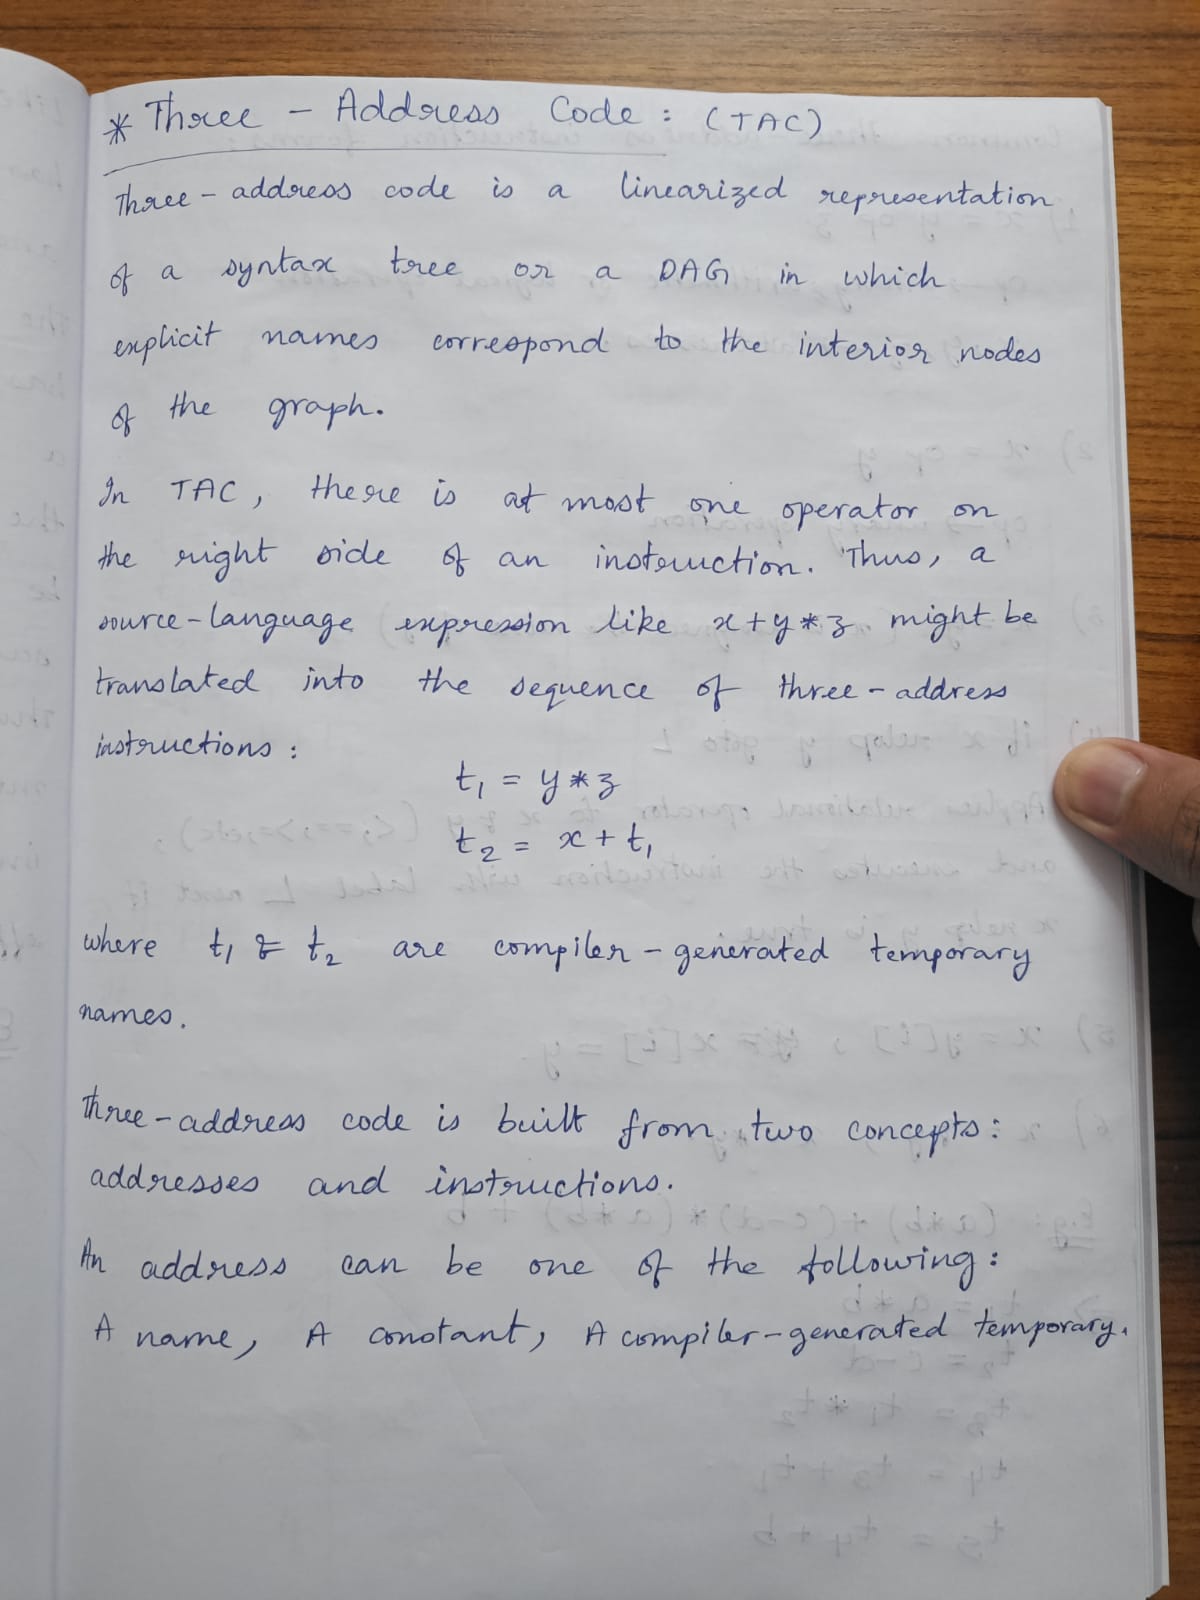 * Three - Address Code : (TAC)
Three - address code is a linearized representation
of a syntax tree or a DAG in which
explicit names correspond to the interior nodes
of the graph.
In TAC, there is at most one operator on
the right side of an instruction. Thus, a
source-language expression like x+y*z might be
translated into the sequence of three-address
instructions :
t₁ = y*z
t₂ = x + t₁
where t₁ & t₂ are compiler-generated temporary
names.
Three-address code is built from two concepts:
addresses and instructions.
An address can be one of the following:
A name, A constant, A compiler-generated temporary.